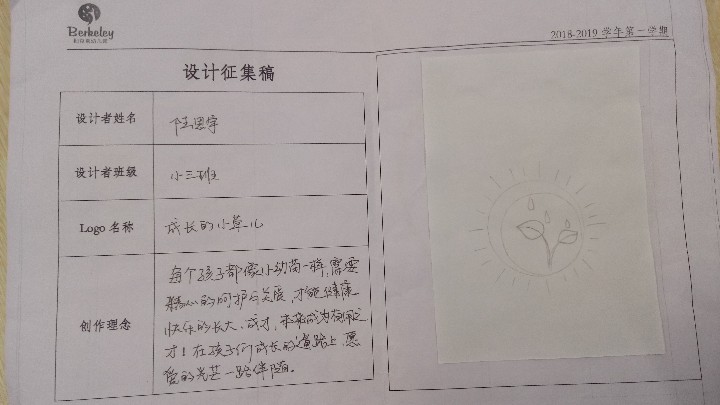 Berkeley
2018-2019 学年第一学期
设计征集稿
设计者姓名
陆思宇
设计者班级
小三班
Logo 名称
成长的小草儿
创作理念
每个孩子都像小幼苗一样,需要
精心的呵护与关爱,才能健康
快乐的长大、成才,未来成为有用之
才!在孩子们成长的道路上,愿
爱的光芒一路伴随。